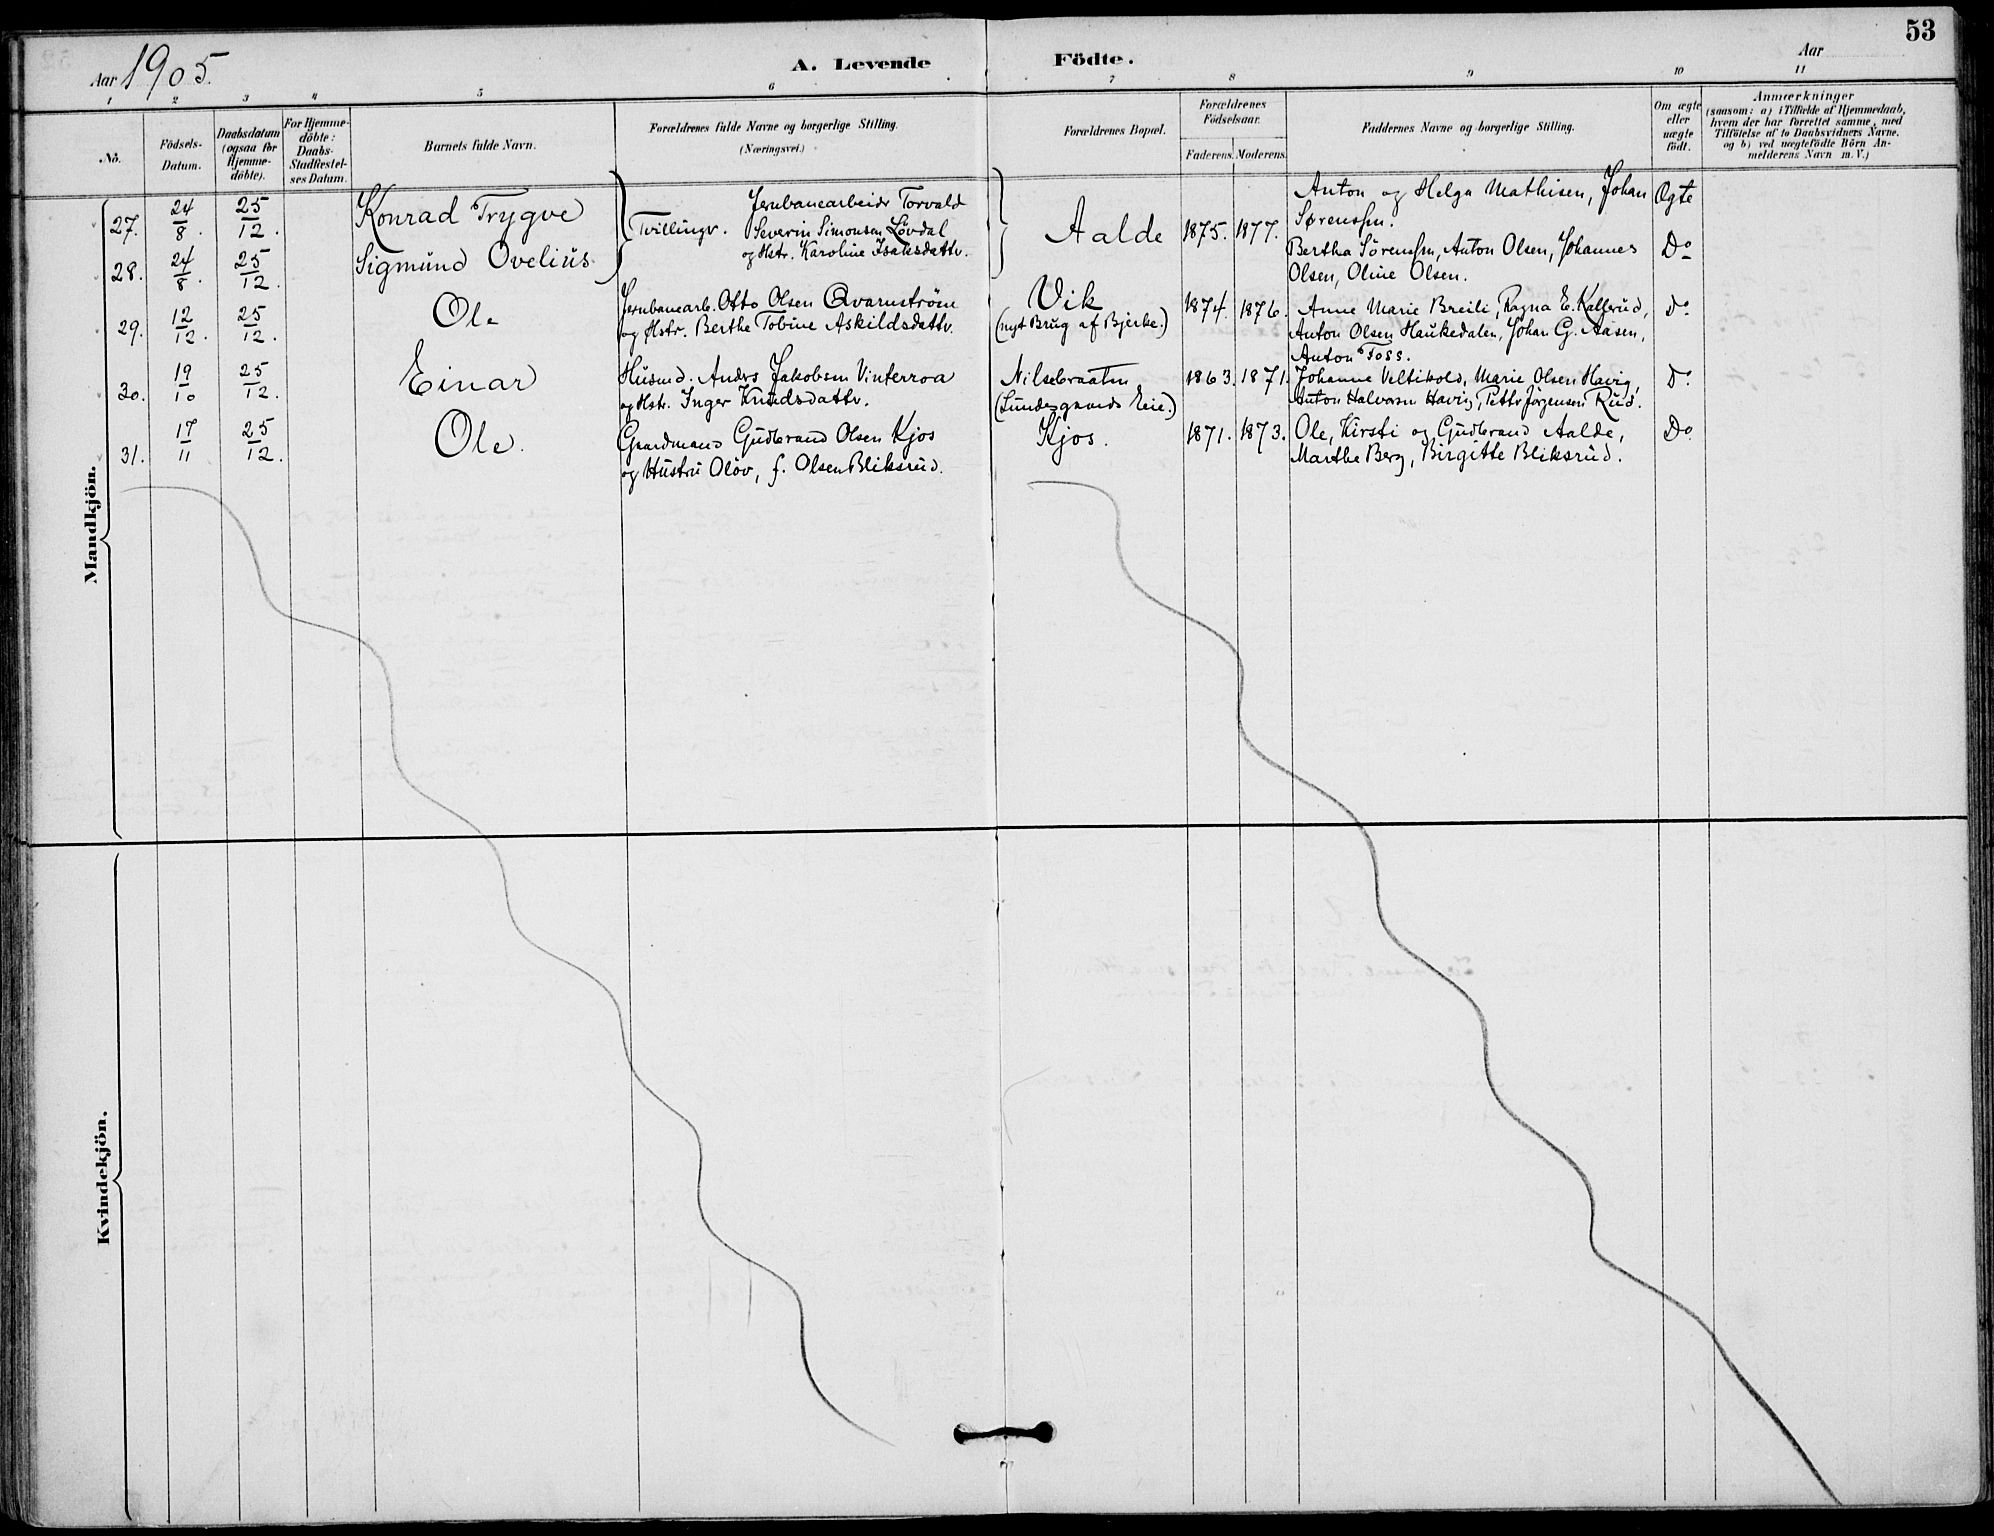 53
Aar 1905.
A. Levende Födte.
Aar
1 2 3 4 5 6 7 8 9 10 11
No.
Födsels-Datum.
Daabsdatum (ogsaa for Hjemme-döbte).
For Hjemme-döbte: Daabs-Stadfæstel-ses Datum.
Barnets fulde Navn.
Forældrenes fulde Navne og borgerlige Stilling.
(Næringsvei.)
Forældrenes Bopæl.
Forældrenes Födselsaar.
Faderens. Moderens.
Faddernes Navne og borgerlige Stilling.
Om ægte eller uægte födt.
Anmærkninger
(saasom: a) i Tilfælde af Hjemmedaab,
hvem der har forrettet samme, med
Tilföielse af to Daabsvidners Navne.
og b) ved uægtefödte Börn An-
melderens Navn m. V.)
Mandkjön.
27. 24/8. 25/12. Konrad Trygve
Tvillinger. Jernbanearbeider Torvald
Severin Simonsen Lövdal
og Hstr. Karoline Isaksdatter.
Aalde 1875. 1877.
Anton og Helga Mathisen, Johan
Sørensen.
Ægte
28. 24/8. 25/12. Sigmund Ovelius
Bertha Sörensen, Anton Olsen, Johannes
Olsen, Oline Olsen.
Do
29. 12/12. 25/12. Ole
Jernbanearb. Otto Olsen Qvarnström
og Hstr. Berthe Tobine Askildsdatter.
Vik
(nyt Brug af Bjerke.)
1874. 1876.
Anne Marie Breili, Ragna E. Kallerud,
Anton Olsen Haukedalen, Johan G. Aasen,
Anton Foss.
Do
30. 19/10 25/12. Einar
Husmd. Anders Jakobsen Vinterroa
og Hstr. Inger Knudsdatter.
Nilsebraaten
(Lundesgaards Eie.)
1863. 1871.
Johanne Veltikold, Marie Olsen Havig,
Anton Halvorsen Havig, Petter Jørgensen Rud.
Do
31. 17/11 25/12. Ole.
Gaardmand Gudbrand Olsen Kjos
og Hustru Olöv, f. Olsen Bliksrud.
Kjos.
1871. 1873.
Ole, Kirsti og Gudbrand Aalde,
Marthe Berg, Birgitte Bliksrud.
Do
Kvindekjön.